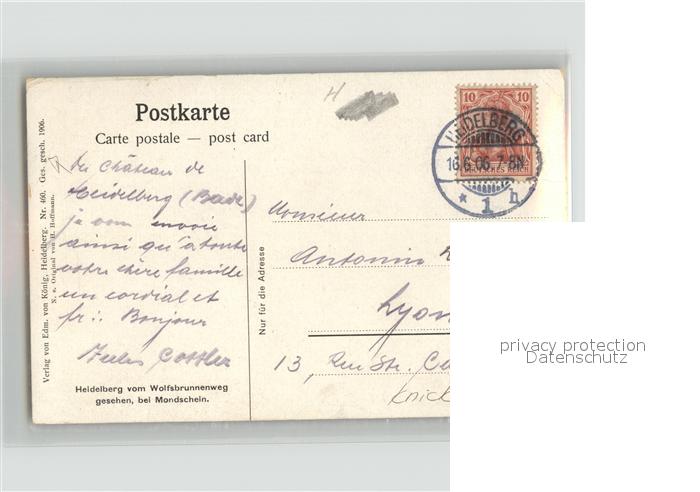 Postkarte
Carte postale — post card
H
10 10
HEIDELBERG
16.6.06.7-8N
* 1 h
Du Château de
Heidelberg (Bade)
je vous envoie
ainsi qu'à toute
votre chère famille
un cordial et
fr∴ Bonjour
Jules
Heidelberg vom Wolfsbrunnenweg
gesehen, bei Mondschein.
Verlag von Edm. von König, Heidelberg. Nr. 460. Ges. gesch. 1906.
N. e. Original von H. Hoffmann.
Nur für die Adresse
Monsieur
Antonin
Lyon
13, Rue St. Ca
Knick
privacy protection
Datenschutz